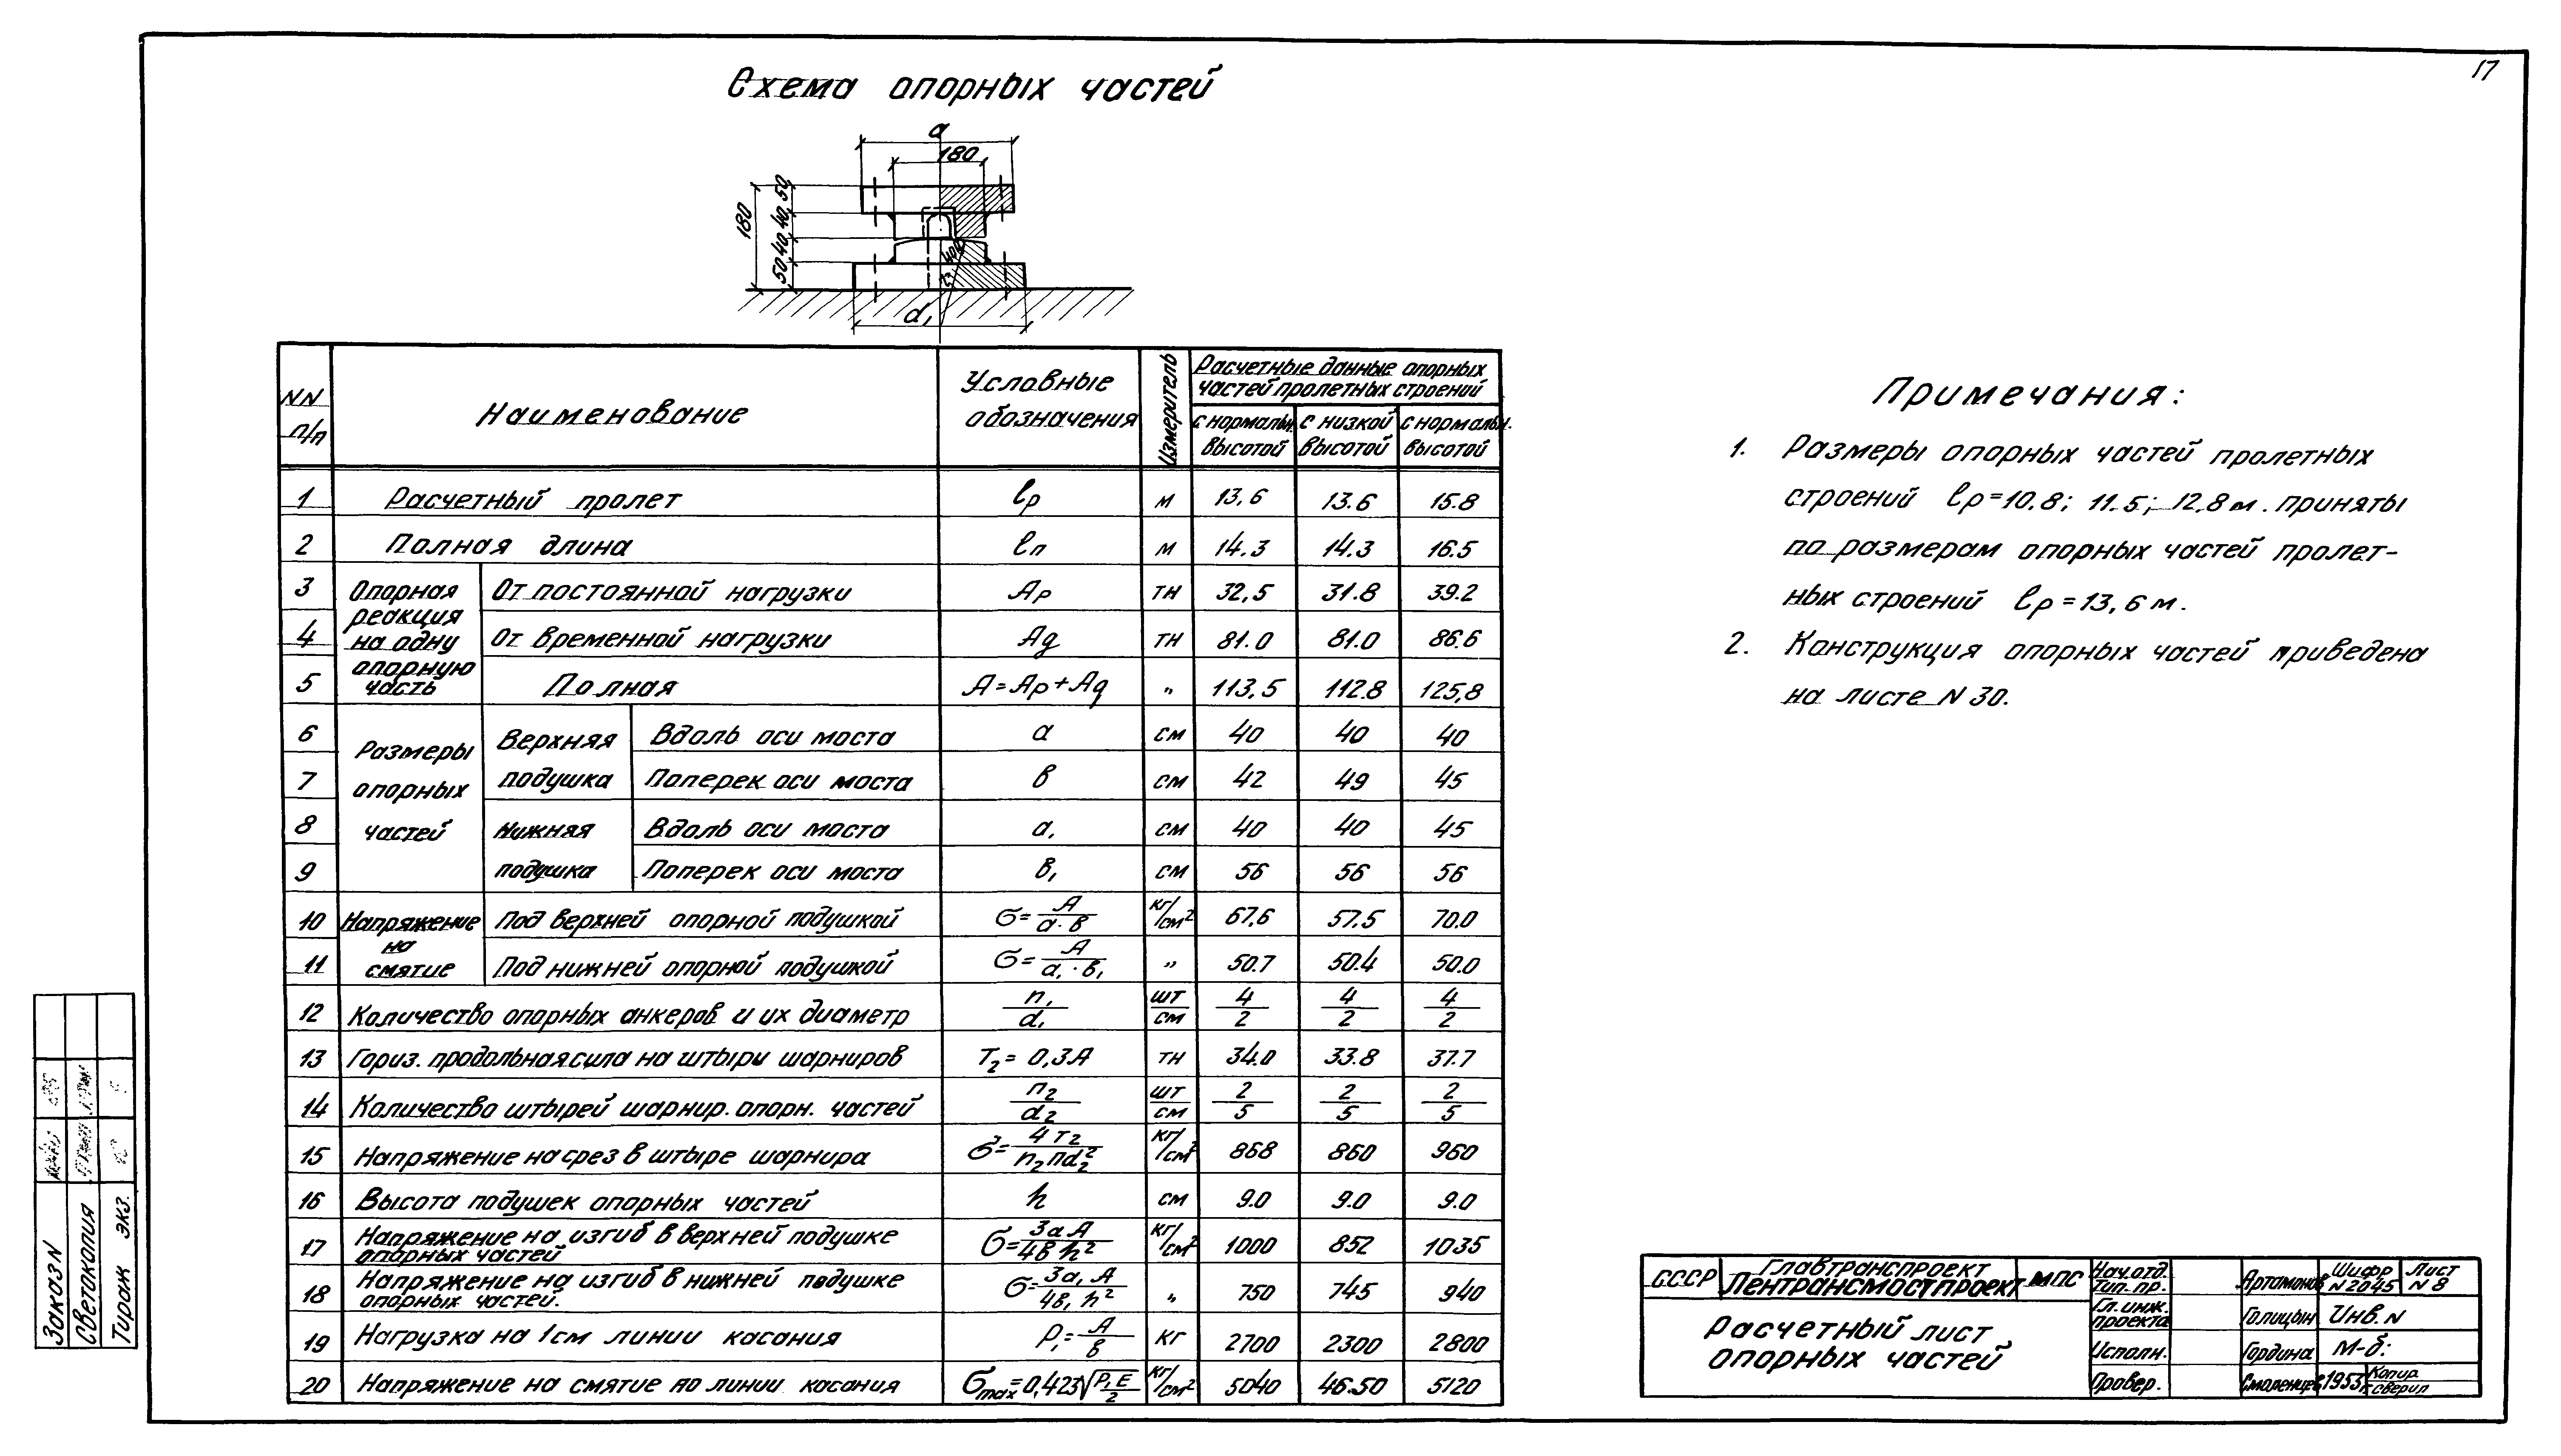 17
Схема опорных частей
a
180
180
50 40 40 50
d₁
NN п/п
Наименование
Условные обозначения
Измеритель
Расчетные данные опорных
частей пролетных строений
с нормальн. высотой
с низкой высотой
с нормальн. высотой
1 Расчетный пролет ℓр м 13,6 13.6 15.8
2 Полная длина ℓп м 14.3 14.3 16.5
Опорная реакция на одну опорную часть
3 От постоянной нагрузки Aр тн 32,5 31.8 39.2
4 От временной нагрузки Aq тн 81.0 81.0 86.6
5 Полная A=Aр+Aq " 113,5 112.8 125,8
Размеры опорных частей
Верхняя подушка
6 Вдоль оси моста a см 40 40 40
7 Поперек оси моста в см 42 49 45
Нижняя подушка
8 Вдоль оси моста a₁ см 40 40 45
9 Поперек оси моста в₁ см 56 56 56
Напряжение на смятие
10 Под верхней опорной подушкой σ=A/a·в кг/см² 67,6 57.5 70.0
11 Под нижней опорной подушкой σ=A/a₁·в₁ " 50.7 50.4 50.0
12 Количество опорных анкеров и их диаметр n₁/d₁ шт/см 4/2 4/2 4/2
13 Гориз. продольная сила на штыри шарниров T₂=0,3A тн 34.0 33.8 37.7
14 Количество штырей шарнир. опорн. частей n₂/d₂ шт/см 2/5 2/5 2/5
15 Напряжение на срез в штыре шарнира σ=4T₂/n₂πd₂² кг/см² 868 860 960
16 Высота подушек опорных частей h см 9.0 9.0 9.0
17 Напряжение на изгиб в верхней подушке опорных частей σ=3aA/4вh² кг/см² 1000 852 1035
18 Напряжение на изгиб в нижней подушке опорных частей. σ=3a₁A/4в₁h² " 750 745 940
19 Нагрузка на 1см линии касания P₁=A/в кг 2700 2300 2800
20 Напряжение на смятие по линии касания σmax=0,423√P₁E/2 кг/см² 5040 46.50 5120
Примечания:
1. Размеры опорных частей пролетных
строений ℓр=10,8; 11.5; 12,8м. приняты
по размерам опорных частей пролет-
ных строений ℓр=13,6м.
2. Конструкция опорных частей приведена
на листе N 30.
СССР
Главтранспроект
Лентрансмостпроект
МПС
Расчетный лист
опорных частей
Нач.отд. тип.пр. Артамонов Шифр N 2045 Лист N 8
Гл.инж. проекта Голицын Инв.N
Исполн. Гордина М-б:
Провер. Смоленцев 1953г. Копир сверил
Заказ N
Светокопия
Тираж экз.